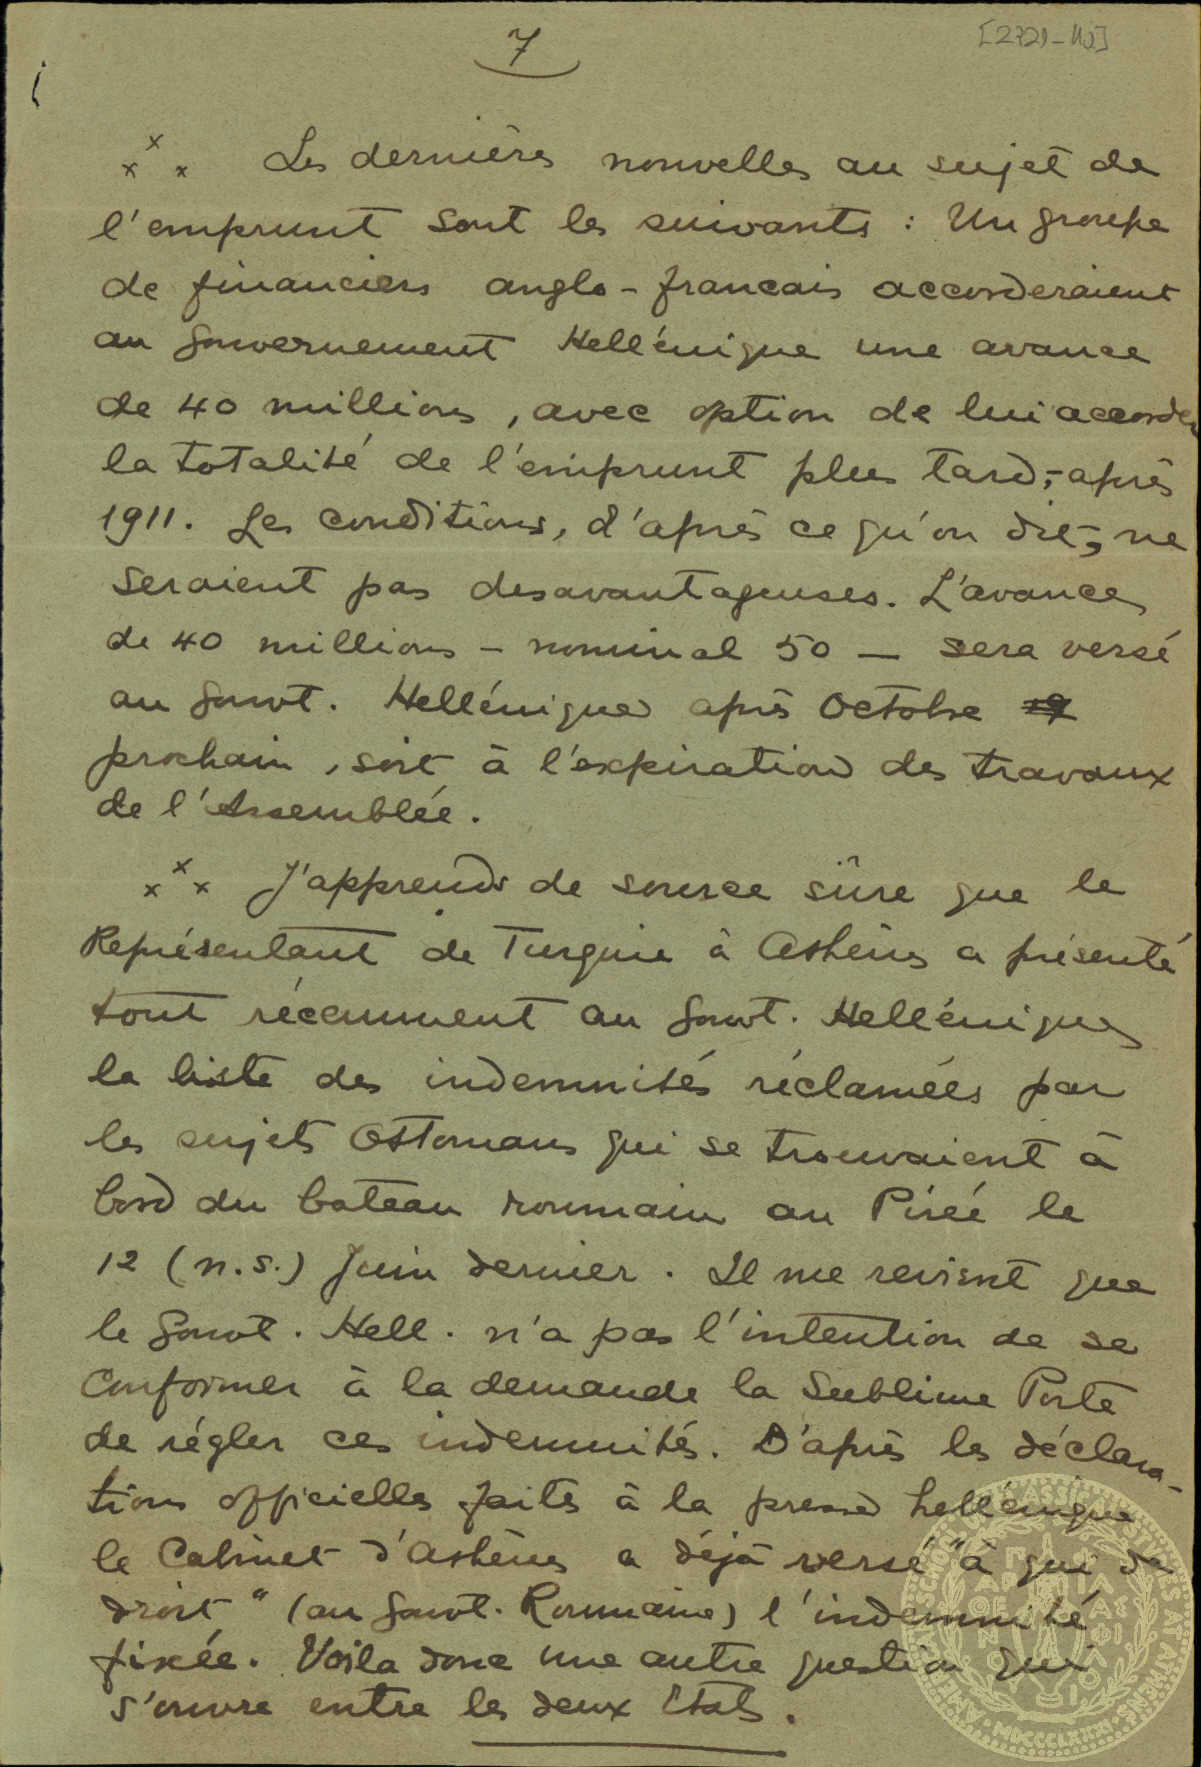 7
[2721-110]
x x x Les dernières nouvelles au sujet de
l'emprunt sont les suivants : Un groupe
de financiers anglo-francais accorderaient
au Gouvernement Hellénique une avance
de 40 millions, avec option de lui accorder
la totalité de l'emprunt plus tard,- après
1911. Les conditions, d'après ce qu'on dit-, ne
seraient pas desavantageuses. L'avance
de 40 millions - nominal 50 - sera versé
au Gouvt. Hellénique après Octobre
prochain, soit à l'expiration des travaux
de l'Assemblée.
x x x J'apprends de source sûre que le
Représentant de Turquie à Athènes a présenté
tout récemment au Gouvt. Hellénique
la liste des indemnités réclamées par
les sujets Ottomans qui se trouvaient à
bord du bateau roumain au Pirée le
12 (n.s.) Juin dernier. Il me revient que
le Gouvt. Hell. n'a pas l'intention de se
conformer à la demande la Sublime Porte
de régler ces indemnités. D'après les déclara-
tions officielles faites à la presse hellénique
le Cabinet d'Athènes a déjà versé "à qui de
droit" (au Gouvt. Roumaine) l'indemnité
fixée. Voila donc une autre question qui
s'ouvre entre les deux Etats.